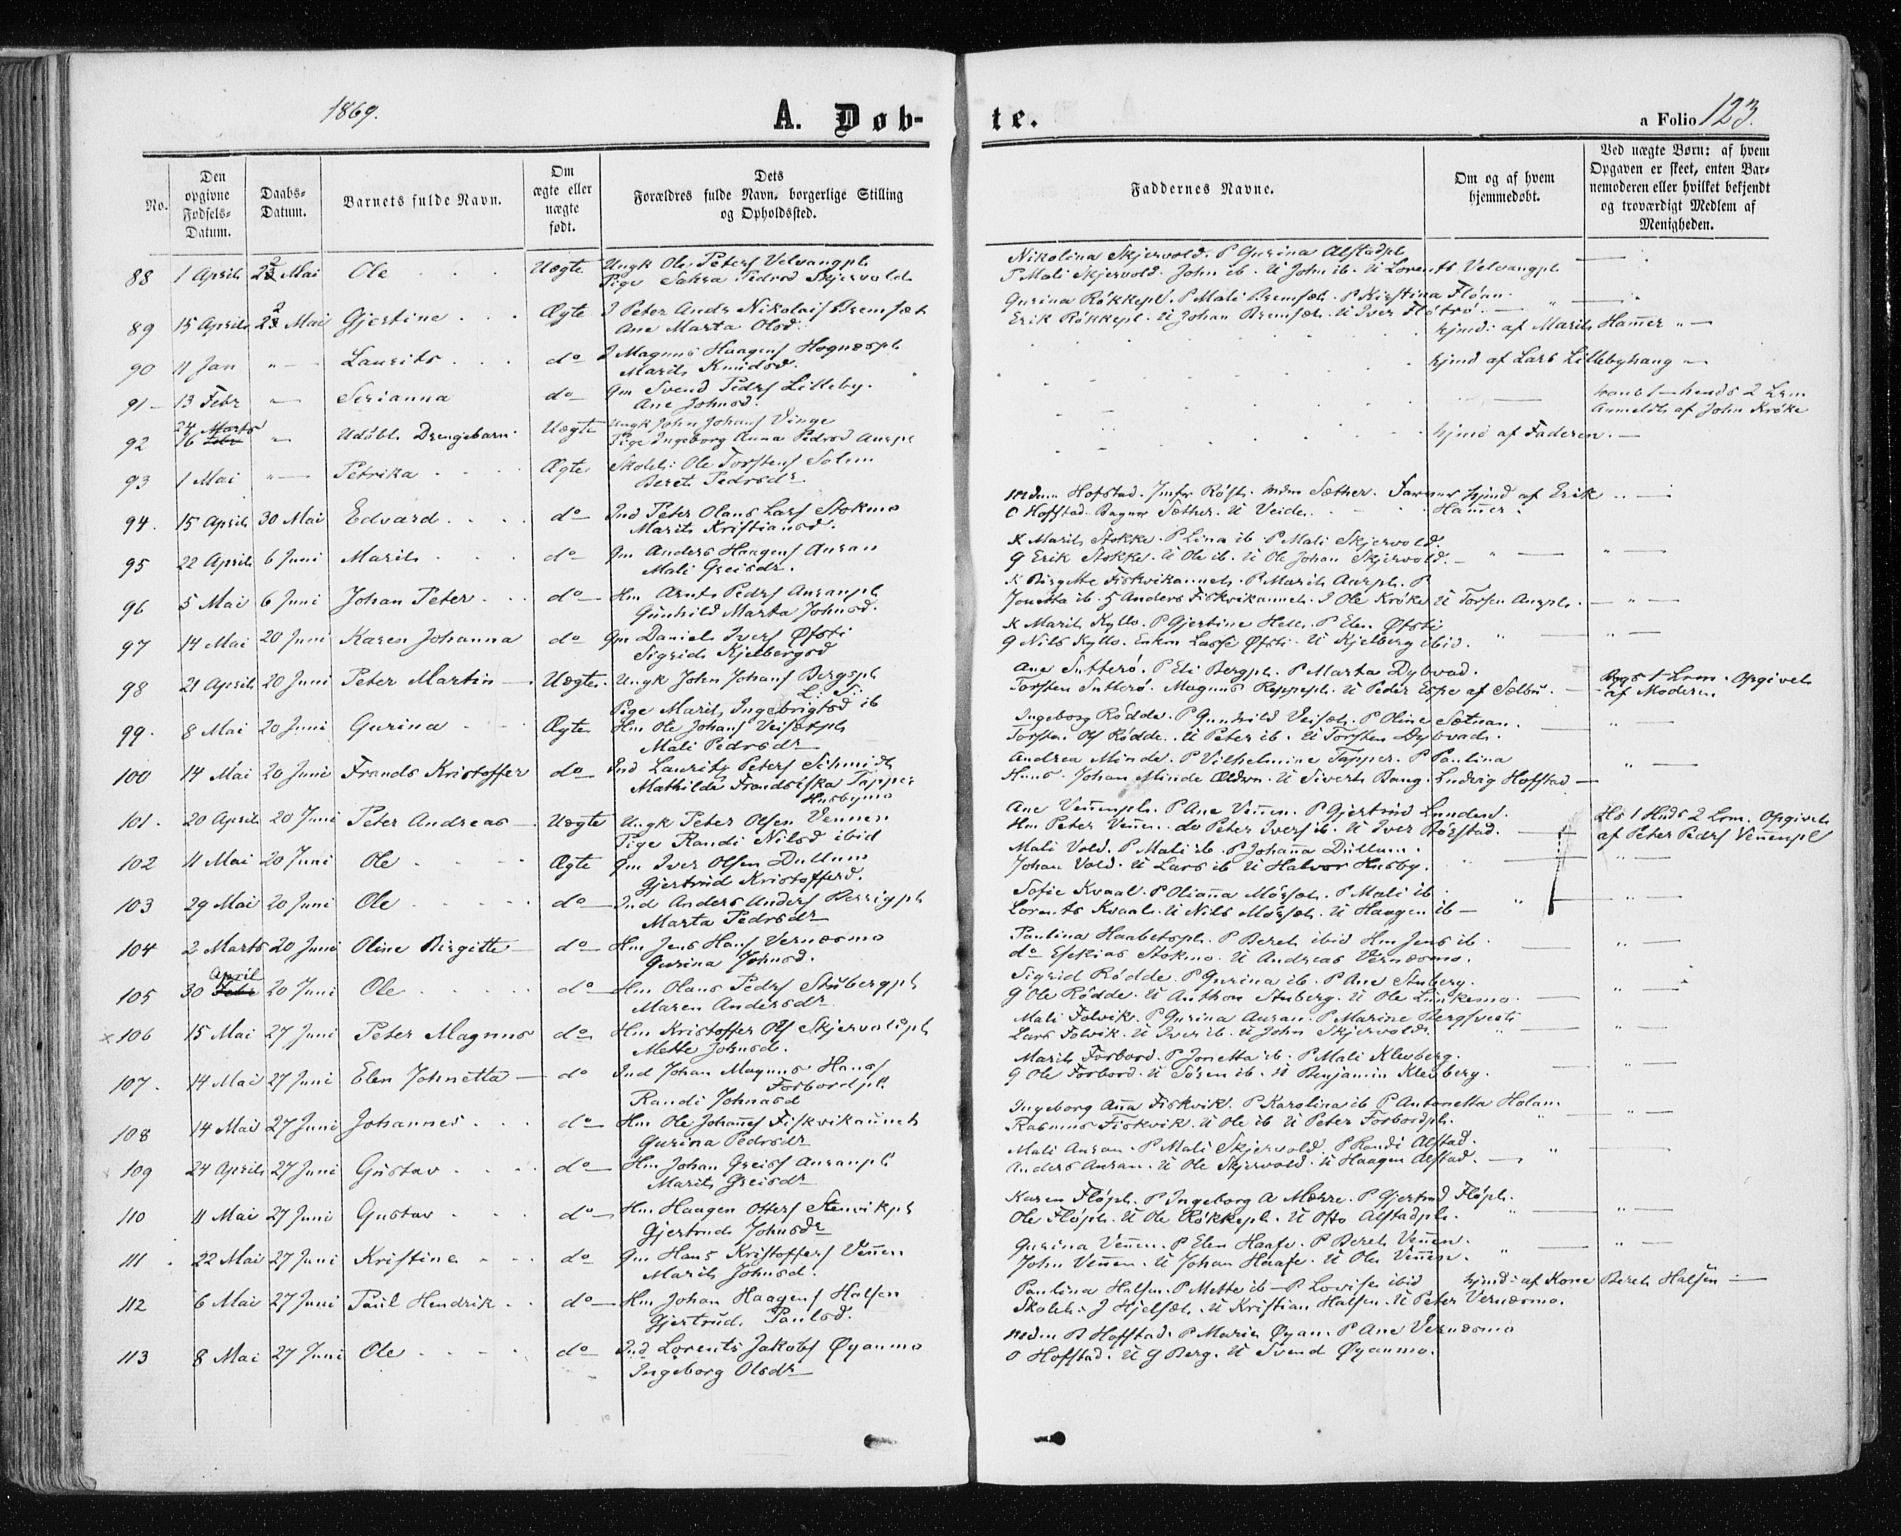 1869.
A. Døb-
te.
a Folio 123.
No.
Den opgivne Fødsels-Datum.
Daabs-Datum.
Barnets fulde Navn.
Om ægte eller uægte født.
Dets Forældres fulde Navn, borgerlige Stilling og Opholdssted.
Faddernes Navne.
Om og af hvem hjemmedøbt.
Ved uægte Børn: af hvem Opgaven er skeet, enten Barnemoderen eller hvilket bekjendt og troværdigt Medlem af Menigheden.
88 1 April 2 Mai Ole Uægte Ungk Ole Peters Velvangpl
Pige Sahra Pedersd Skjervold
Nikolina Skjervold. P Gurina Alstadpl
P Mali Skjervold. John ib. U John ib. U Lorents Velvangpl
89 15 April 2 Mai Gjertine Ægte I Peter Andr Nikolais Bremset
Ane Marta Olsd.
Gurina Røkkepl. P Mali Bremset. P Kirstina Fløan.
Erik Røkkepl. U Johan Bremset. U Iver
90 11 Jan Laurits do I Magnus Haagens Hognespl
Marit Knudsd.
hjmd: af Marit Hamer
91 13 Febr Serianna do Gm Svend Peders Lilleby.
Ane Johnsd.
hjmd af Lars Lillebyhaug
92 24 Marts Udøbt Drengebarn Uægte Ungk John Johans Vinge
Pige Ingeborg Anna Pedersd Auspl
Anmeldt af John Krøke
93 1 Mai Petrika Ægte Skolel: Ole Torstens Solem
Beret Pedersdr
hjmd af Faderen.
94. 15 April 30 Mai Edvard do Ind Peter Olaus Lars Stokmo
Marit Kristiansd.
Mdm Hofstad. Jmfr Røst. Mdm Sæther. Farver
O Hoffstad. Bagner Sæther. U Veide.
hjmd af Erik Hamer.
95 22 April 6 Juni Marit do Gm Anders Haagens Auran
Mali Greisdr.
K Marit Stokke. P Lina ib P Mali Skjervold.
G Erik Stokke. U Ole ib. U Ole Johan Skjervold.
96 5 Mai 6 Juni Johan Peter do Hm Arnt Peders Auranpl
Gunhild Marta Johnsd.
K Birgitte Fiskvikaunet. P Marit Aurpl. P
Jonetta ib. G Anders Fiskvikaunet. I Ole Krøke U Torsten Aurpl.
97 14 Mai 20 Juni Karen Johanna do Gm Daniel Ivers Øfsti
Sigrid Kjelbergsd
K Marit Kyllo. P Gjertine Hell. P Elen Øfsti
G Nils Kyllo. Enkm Lasse Øfsti. U Kjelberg ibid.
98 21 April 20 Juni Peter Martin Uægte Ungk John Johans Bergspl
L: T:
Pige Marit Ingebrigtsd ib
Ane Sutterø. P Eli Bergpl. P Marta Dybvad.
Torsten Sutterø. Magnus Reppepl. U Peder Espe af Selbu.
Opgivet af Moderen
99. 8 Mai 20 Juni Gurina Ægte Hm Ole Johans Veisetpl
Mali Pedersdr
Ingeborg Rødde. P Gunhild Veiset. P Oline Sætnan.
Torsten Ols Rødde. U Peter ib. U Torsten Dybvad.
100 14 Mai 20 Juni Frands Kristoffer do Ind Laurits Peters Schmidt
Mathilde Frandsiska Tapper
Husbymo
Andrea Minde. P Vilhelmine Tapper. P Paulina
Huus. Johan Minde. U Sivert Bang. Ludvig Hoffstad
101. 20 April 20 Juni Peter Andreas Uægte Ungk Peter Olsen Vennen
Pige Randi Nilsd ibid
Ane Vennenpl. P Ane Vennen. P Gjertrud Lunden.
Hm Peter Vennen. do Peter Ivers ib. U Iver Børstad.
Hs 1 Hnds 2 Lrm. Opgivet
af Peter Peders Vennenpl
102 11 Mai 20 Juni Ole Ægte Gm Iver Olsen Dullum
Gjertrud Kristoffersd.
Mali Vold. P Mali ib. P Johanna Dullum.
Johan Vold. U Lars ib U Halvor Husby.
103 29 Mai 20 Juni Ole do Ind Anders Anders Berrigpl
Marta Pedersdr
Sofie Kvaal. P Olianna Morset. P Mali ib.
Lorents Kvaal. U Nils Morset. U Haagen ib
104 2 Marts 20 Juni Oline Birgitte do Hm Jens Hans Vernesmo
Gurina Johnsd.
Paulina Haabetspl. P Beret ibid Hm Jens ib.
do Esekias Stokmo. U Andreas Vernesmo.
105 30 April 20 Juni Ole do Hm Olaus Peders Stubergpl
Maren Andersdr
Sigrid Rødde. P Gurina ib. P Ane Stuberg.
G Ole Rødde. U Anthon Stuberg. U Ole Lunkemo.
x106 15 Mai 27 Juni Peter Magnus do Hm Kristoffer Ols Skjervoldpl
Mette Johnsd.
Mali Folvik. P Gurina Auran. P Marine Bergsveet
Lars Folvik. U Iver ib. U John Skjervold.
107. 14 Mai 27 Juni Elen Johnetta do Ind Johan Magnus Hans
Forbordpl.
Randi Johnasd
Marit Forbord. P Jonetta ib. P Mali Klevberg.
G Ole Forbord. U Søren ib. U Benjamin Klevberg.
108 14 Mai 27 Juni Johannes do Hm Ole Johans Fiskvikaunet
Gurina Pedersdr
Ingeborg Anna Fiskvik. P Karolina ib P Antonetta Holan.
Rasmus Fiskvik. U Ole ib U Peter Forbordpl.
109 24 April 27 Juni Gustav do Hm Johan Greis Auranpl
Marit Greisdr
Mali Auran. P Mali Skjervold. P Randi Alstad.
Anders Auran. U Ole Skjervold. U Haagen Alstad.
110 11 Mai 27 Juni Gustav do Hm Haagen Otters Stenvikpl
Gjertrud Johnsdr
Karen Fløpl. P Ingeborg A Mærre. P Gjertrud Fløpl.
Ole Fløpl. U Ole Røkkepl. U Ofto Alstadpl.
111 22 Mai 27 Juni Kristine do Gm Hans Kristoffers Vennen
Marit Johnsd.
Gurina Vennen. P Elen Haafe. P Beret Vennen.
John Vennen. U Johan Haafe. U Ole Vennen.
112 6 Mai 27 Juni Paul Hendrik do Hm Johan Haagens Halsen
Gjertrud Paulsd.
Paulina Halsen. P Mette ib P Lovise ibid
Skolel. J Hjelset. U Kristian Halsen. U Peter Vernesmo.
hjmd: af Kone Beret Halsen
113 8 Mai 27 Juni Ole do Ind Lorents Jakobs Øyanmo
Ingeborg Olsdr
Mdm B Hoffstad. P Marie Øyan. P Ane Vernesmo
O Hoffstad. U G Berg. U Svend Øyanmo.